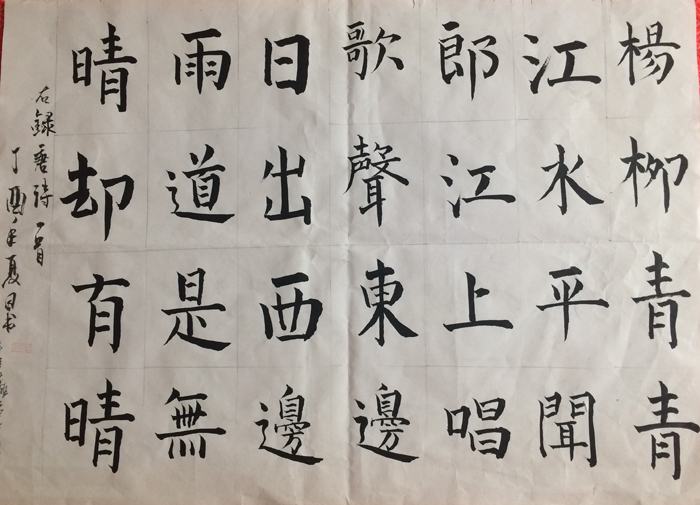 楊柳青青
江水平聞
郎江上唱
歌聲東邊
日出西邊
雨道是無
晴却有晴
右錄唐詩一首
丁酉年夏日書